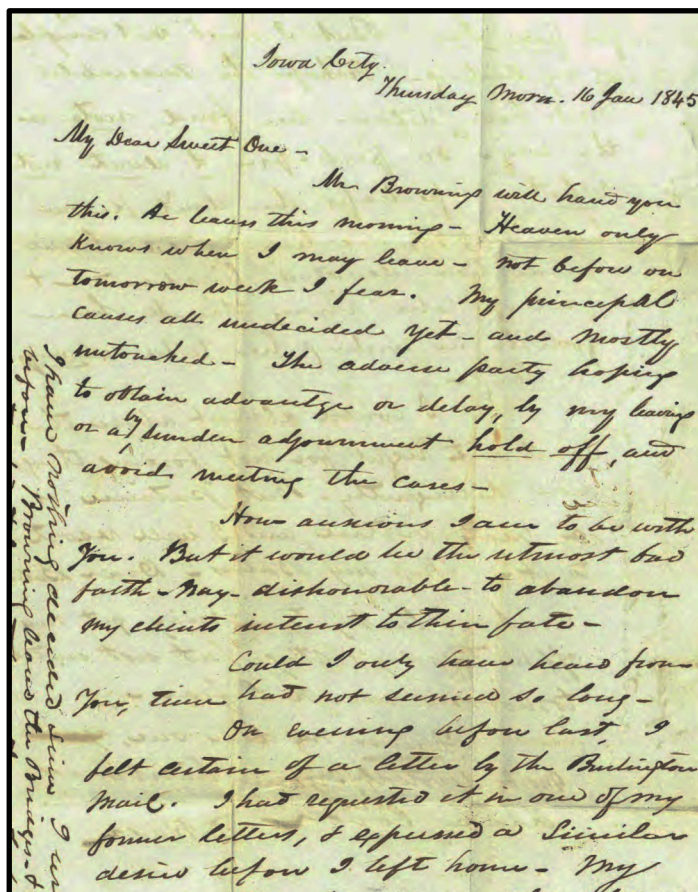 Iowa City.
Thursday Morn. 16 Jan 1845
My Dear Sweet One -
Mr Browning will hand you
this. He leaves this morning - Heaven only
knows when I may leave - not before on
tomorrow week I fear. My principal
causes all undecided yet - and mostly
untouched - The adverse party hoping
to obtain advantge or delay, by my leaving
or a by sudden adjournment hold off, and
avoid meeting the cases -
How anxious I am to be with
You. But it would be the utmost bad
faith - Nay - dishonorable - to abandon
my clients interest to their fate -
Could I only have heard from
You, time had not seemed so long -
On evening before last, I
felt certain of a letter by the Burlington
Mail. I had requested it in one of my
former letters, & expressed a Similar
desire before I left home - My
I have nothing decided since I
before - Browning leaves the